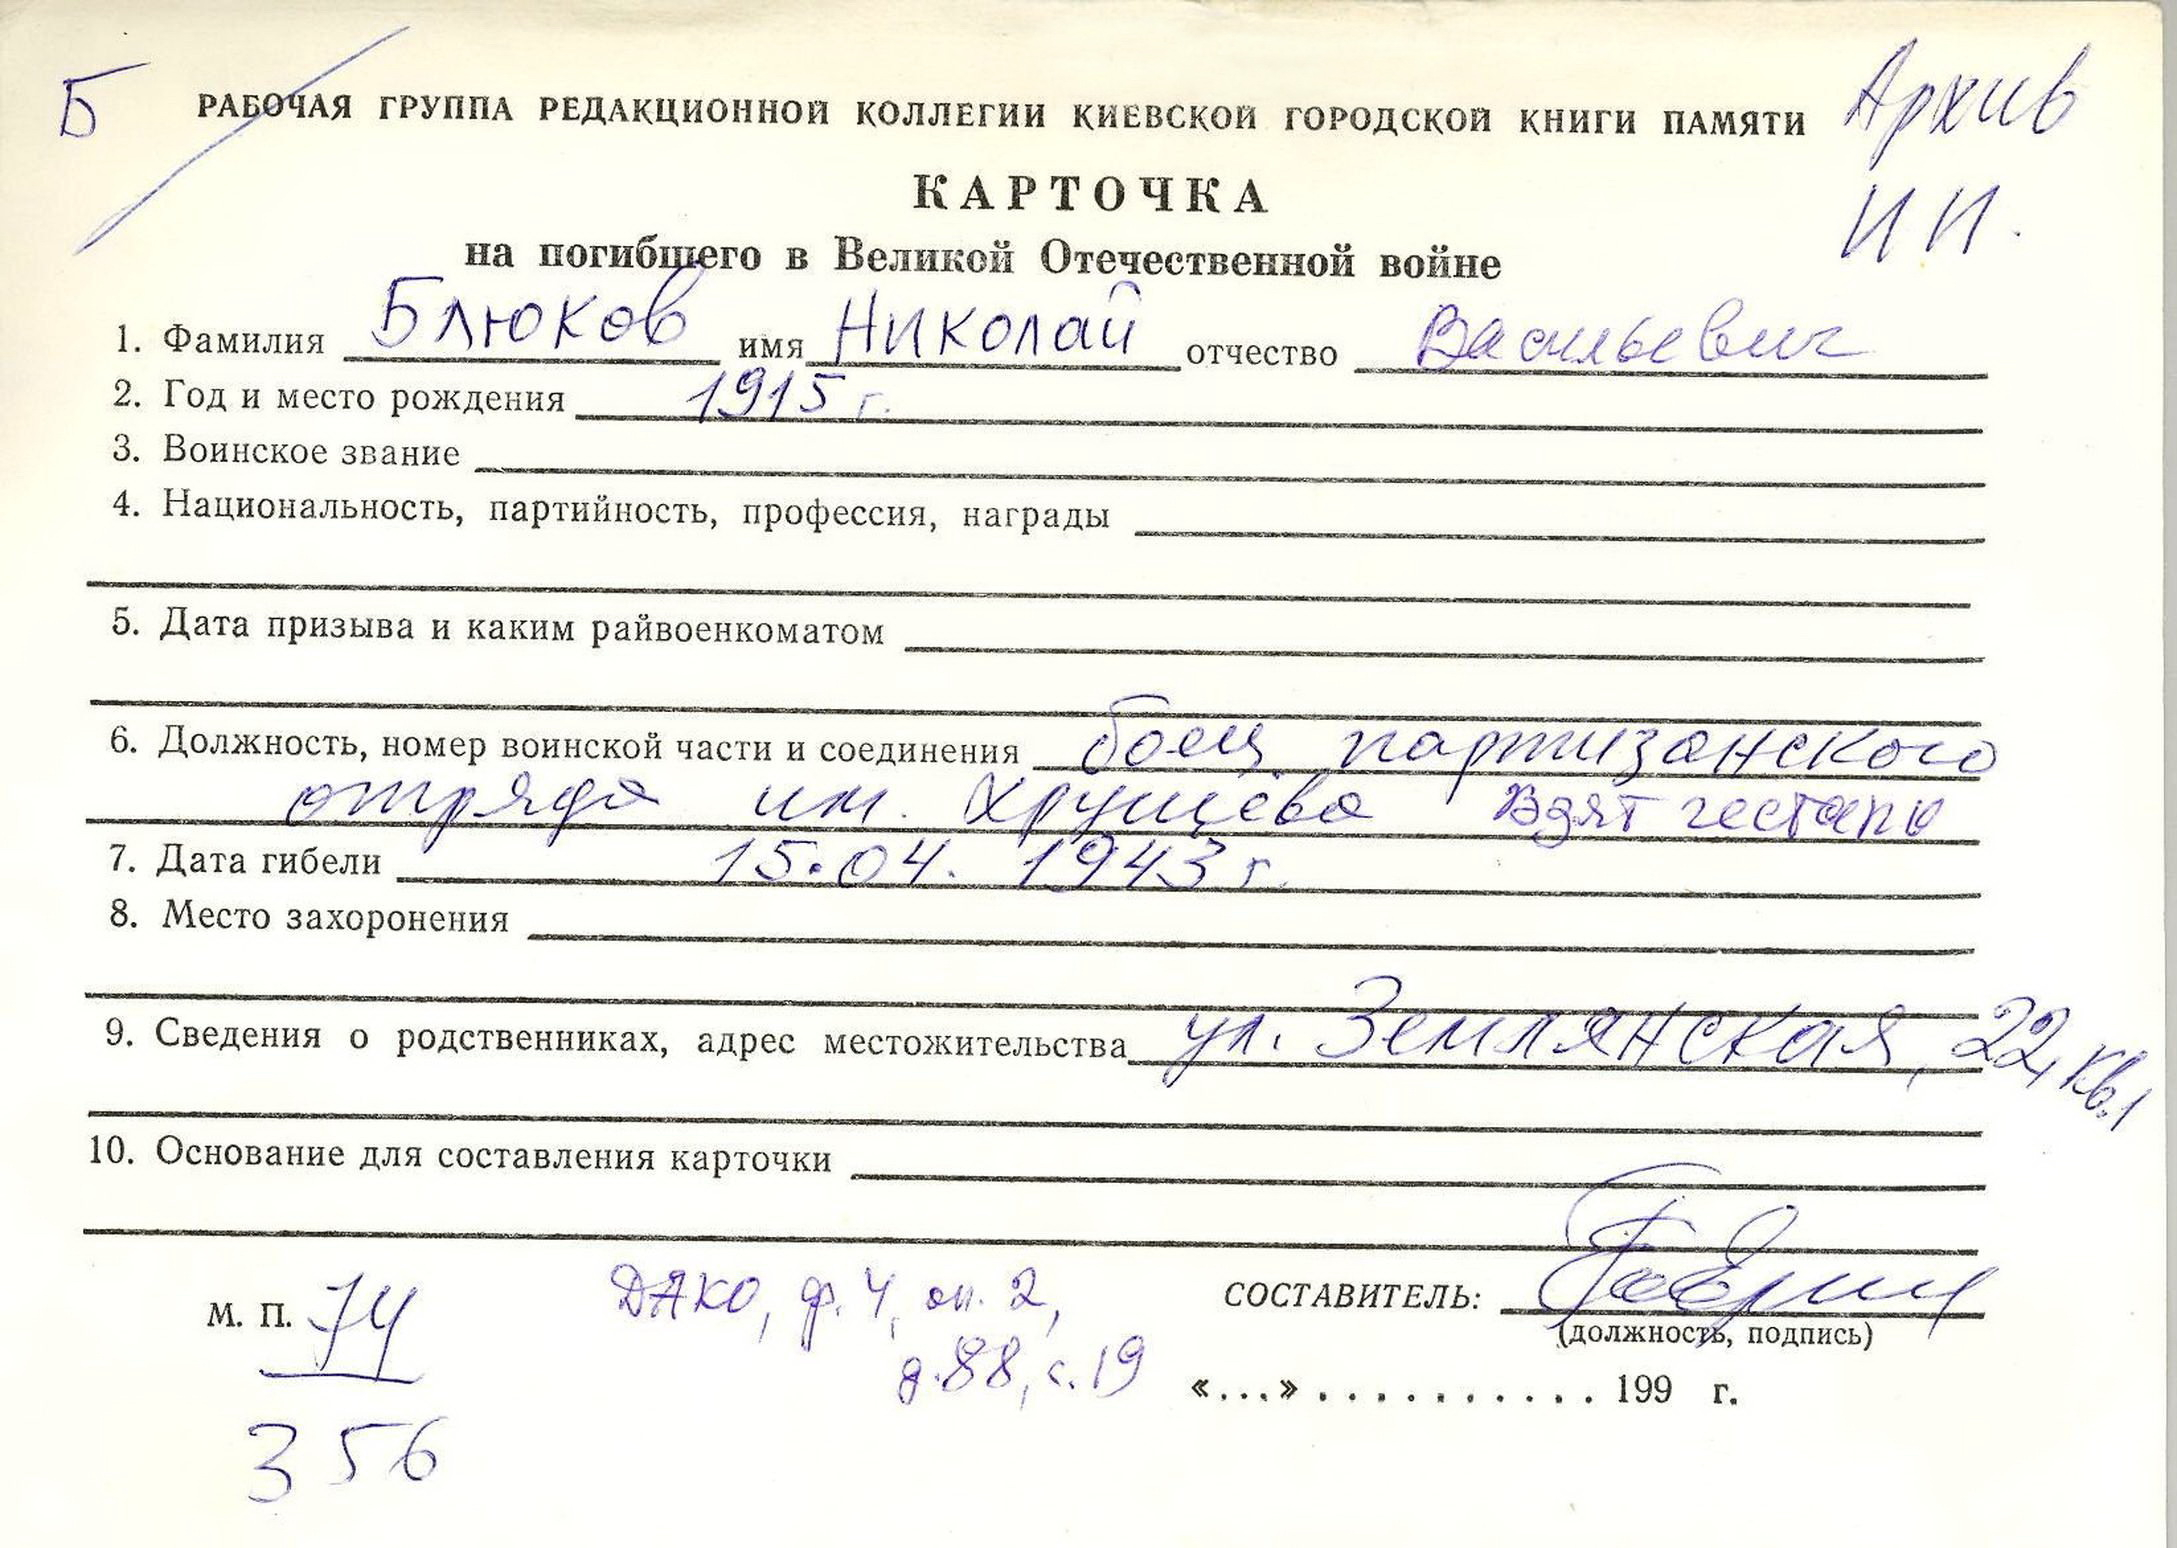 Б РАБОЧАЯ ГРУППА РЕДАКЦИОННОЙ КОЛЛЕГИИ КИЕВСКОЙ ГОРОДСКОЙ КНИГИ ПАМЯТИ Архив
КАРТОЧКА И П.
на погибшего в Великой Отечественной войне
1. Фамилия Блюков имя Николай отчество Васильевич
2. Год и место рождения 1915 г.
3. Воинское звание
4. Национальность, партийность, профессия, награды
5. Дата призыва и каким райвоенкоматом
6. Должность, номер воинской части и соединения боец партизанского
отряда им. Хрущева Взят гестапо
7. Дата гибели 15.04. 1943 г.
8. Место захоронения
9. Сведения о родственниках, адрес местожительства ул. Землянская, 22, кв.1
10. Основание для составления карточки
М. П. 74 ДАКО, ф. 4, оп. 2, СОСТАВИТЕЛЬ:
(должность, подпись)
д. 88, с. 19 «...» . . . . . . . . . . . 199 г.
356